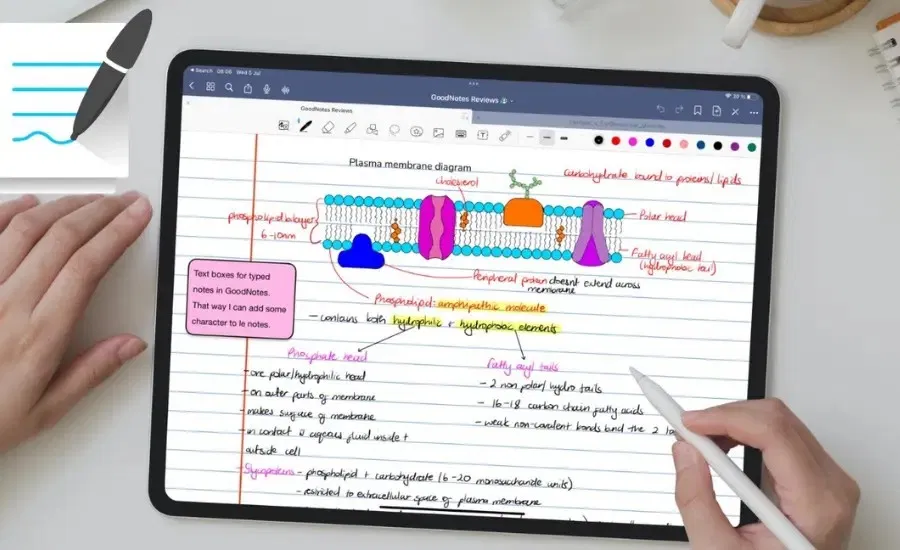 Search 08:08 Wed 5 Jul
GoodNotes Reviews
GoodNotes Reviews
Plasma membrane diagram
cholesterol
Carbohydrate bound to proteins/lipids
phospholipid bilayer
6-10nm
Polar head
Fatty acyl head
(hydrophobic tail)
Peripheral protein doesnt extend across
membrane
Text boxes for typed
notes in GoodNotes.
That way I can add some
character to le notes.
Phospholipid: amphipathic molecule
- contains both hydrophilic + hydrophobic elements
Phosphate head
- one polar/hydrophilic head
- on outer parts of membrane
- makes surface of membrane
- in contact w aqueous fluid inside +
outside cell
Fatty acyl tails
- 2 non polar/hydro tails
- 16-18 carbon chain fatty acids
- weak non-covalent bonds bind the 2
Glycoproteins - phospholipid + carbohydrate (6-20 monosaccharide units)
- restricted to extracellular space of plasma membrane